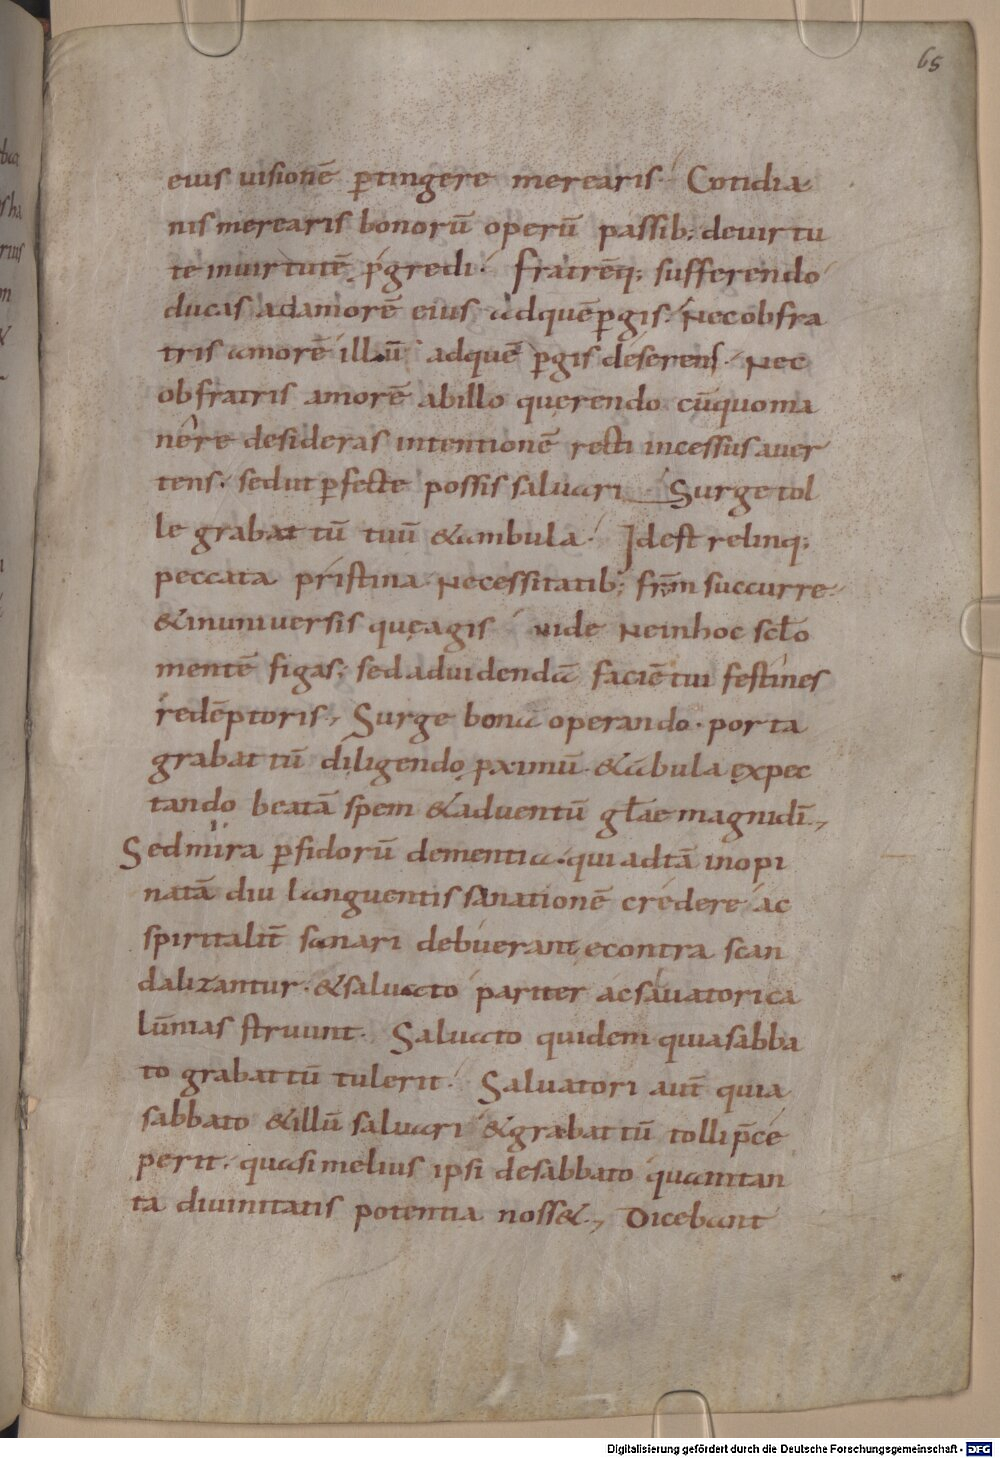 65
eius uisionē ꝑtingere merearis. Cotidia
nis merearis bonorū operū passib; deuirtu
te inuirtutē p̄gredi. fratrēq; sufferendo
ducas adamorē eius adquē ꝑgis. Necobfra
tris amorē illū adquē ꝑgis deserens. Nec
obfratris amorē abillo querendo cūquoma
nere desideras intentionē recti incessus auer
tens. sedut ꝑfecte possis saluari. Surge tol
le grabattū tuū &ambula. Idest relinq;
peccata pristina. Necessitatib; frm̄ succurre
&inuniuersis quęagis uide Neinhoc scl̄o
mentē figas; sed aduidendā faciē tui festines
redēptoris, Surge bona operando. porta
grabattū diligendo ꝓximū. &ābula expec
tando beatā spem &aduentū gl̄ae magnidī.,
Sed mira ꝑfidorū dementia. qui adtā inopi
natā diu languentis sanationē credere ac
spiritalit̄ sanari debuerant econtra scan
dalizantur. &saluato pariter acsauatori ca
lūnias struunt. Saluato quidem quia sabba
to grabattū tulerit. Saluatori aut̄ quia
sabbato &illū saluari &grabattū tolli p̄ce
perit. quasi melius ipsi desabbato quam tan
ta diuinitatis potentia noss&., Dicebant
Digitalisierung gefördert durch die Deutsche Forschungsgemeinschaft - DFG